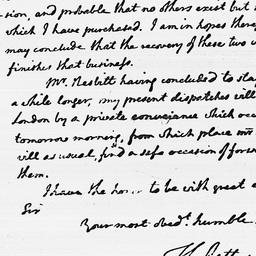 -sion, and probable that no others exist but
which I have purchased. I am in hopes there
may conclude that the recovery of these two
finishes that business.
Mr. Nesbitt having concluded to stay
a while longer, my present dispatches will
London by a private conveiance which occ
tomorrow morning, from which place mr
will as usual, find a safe occasion of forw
them.
I have the hon. to be with great e
Sir
Your most obedt. humble